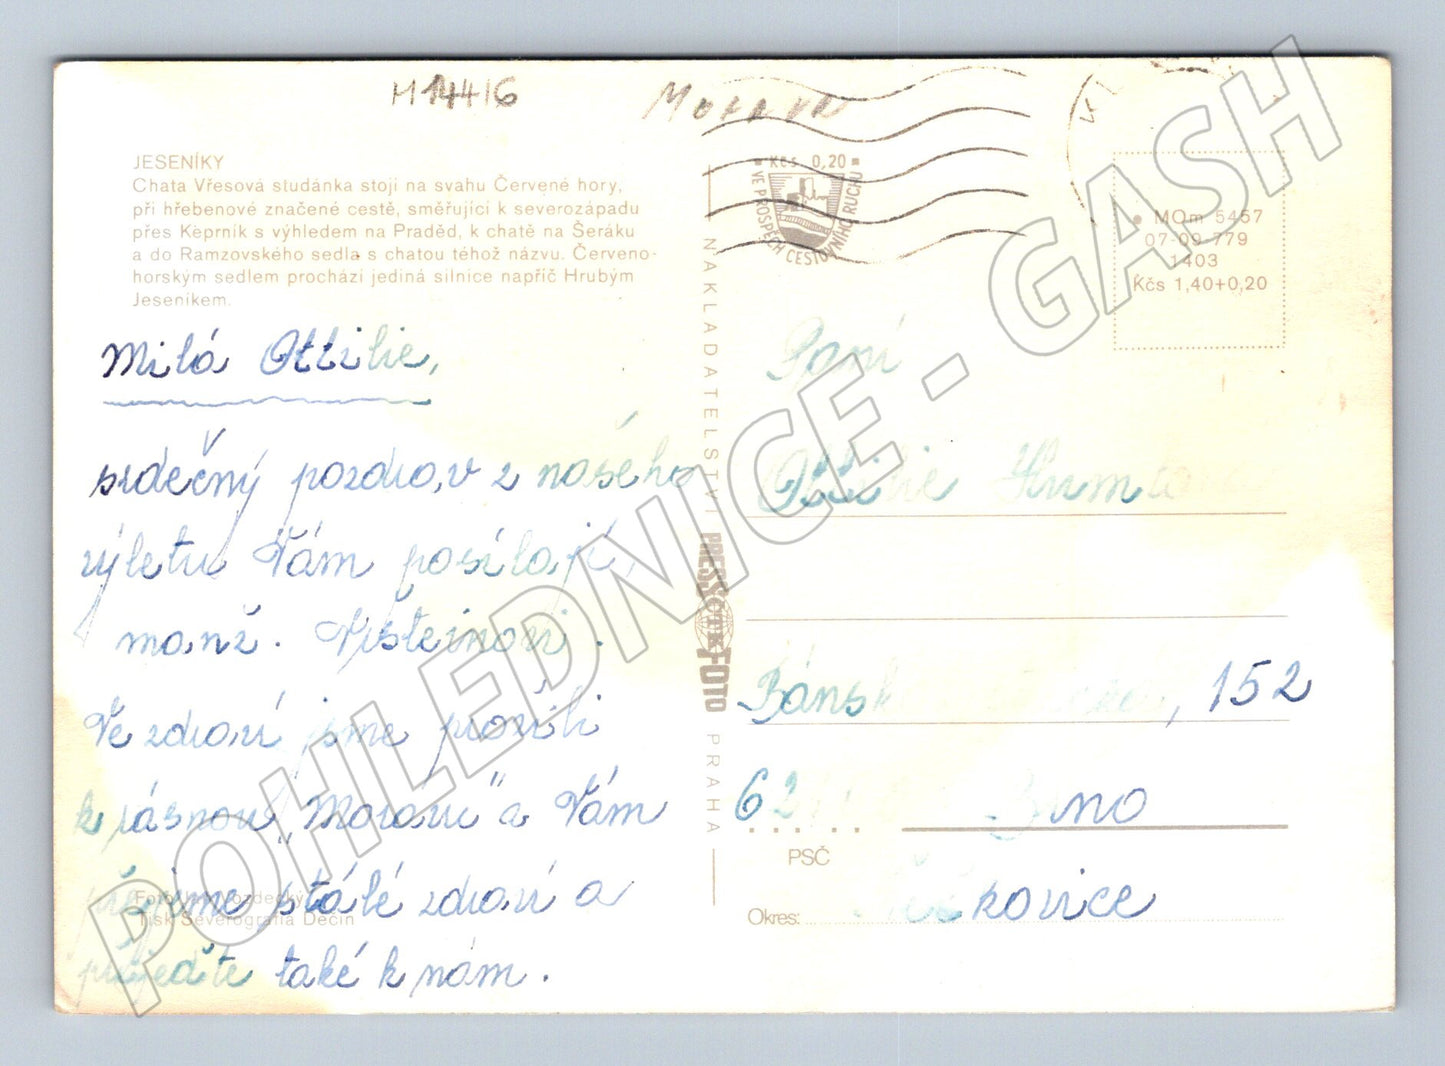 M14416
JESENÍKY
Chata Vřesová studánka stojí na svahu Červené hory,
při hřebenové značené cestě, směřující k severozápadu
přes Keprník s výhledem na Praděd, k chatě na Šeráku
a do Ramzovského sedla s chatou téhož názvu. Červeno-
horským sedlem prochází jediná silnice napříč Hrubým
Jeseníkem.
Milá Ottilie,
srdečný pozdrav z našeho
výletu Vám posílají,
manž. Vršteinovi.
Ve zdraví jsme prožili
krásnou „Moravu" a Vám
přejeme stálé zdraví a
přijeďte také k nám.
Tisk Severografia Děčín
NAKLADATELSTVÍ PRESSFOTO PRAHA
Kčs 0,20
VE PROSPĚCH CESTOVNÍHO RUCHU
MOm 5457
07-09-779
1403
Kčs 1,40+0,20
Paní
Ottilie
152
62 Brno
PSČ
Okres:
POHLEDNICE - GASH